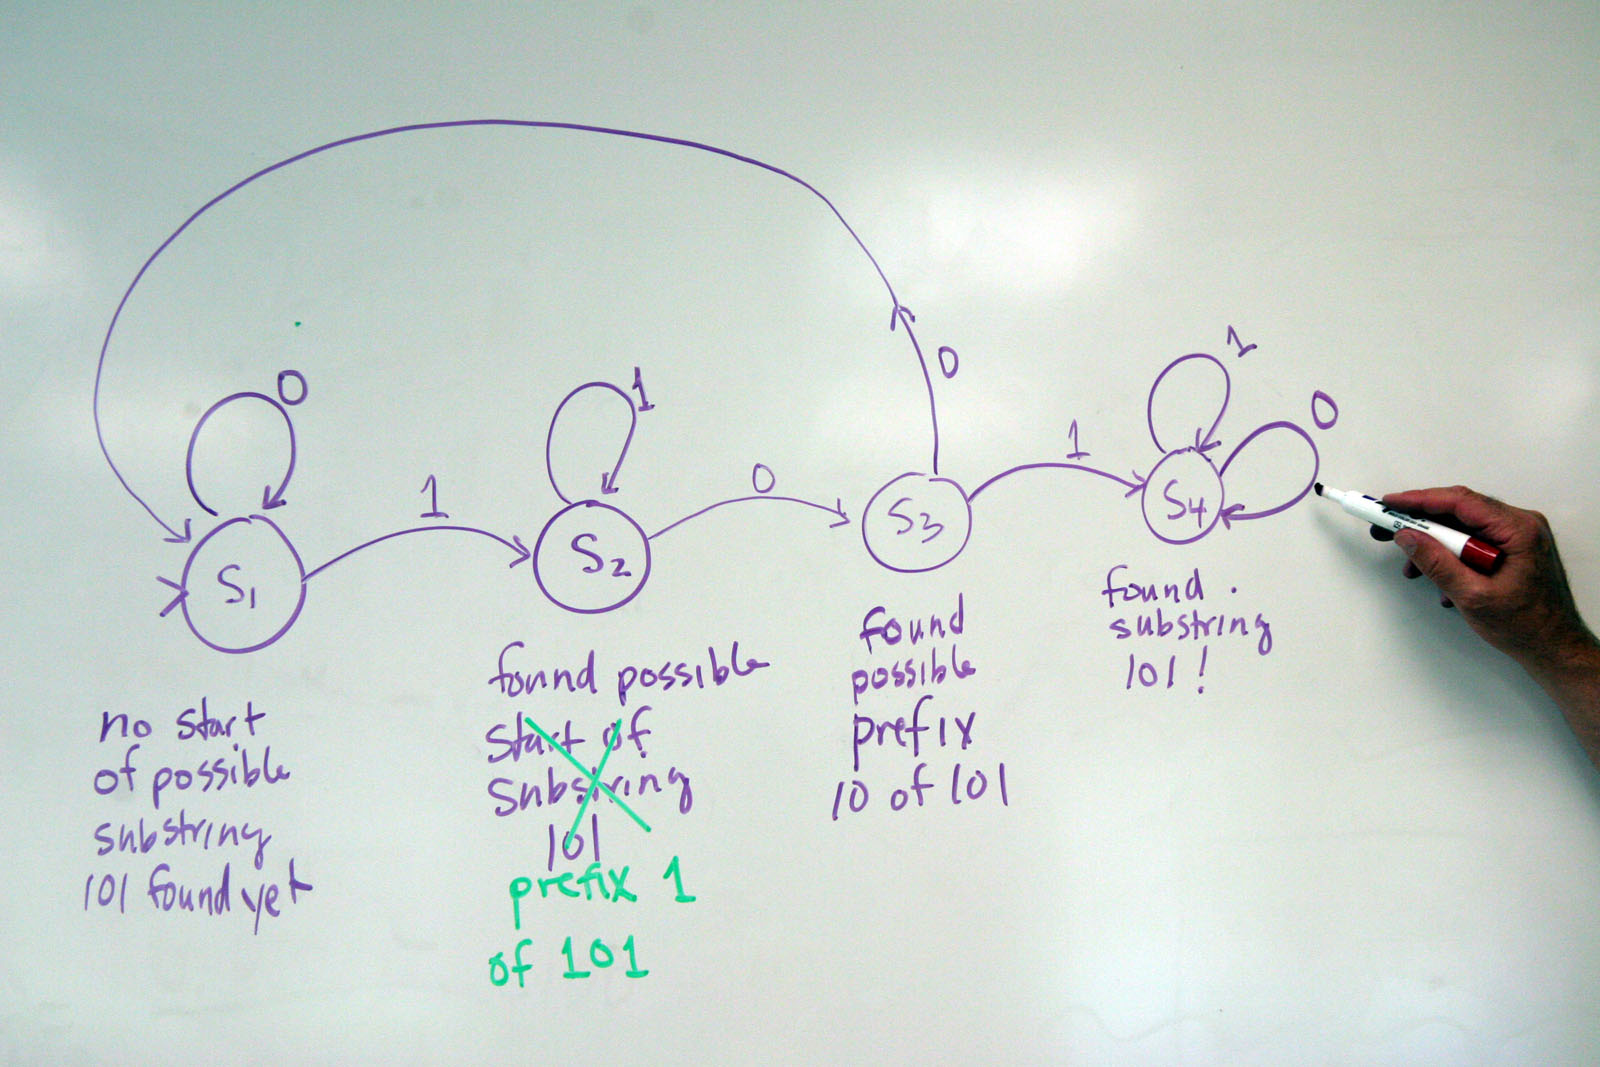 0
1
S1
1
0
S2
0
1
S3
1
0
S4
no start
of possible
substring
101 found yet
found possible
start of
substring
101
prefix 1
of 101
found
possible
prefix
10 of 101
found
substring
101!